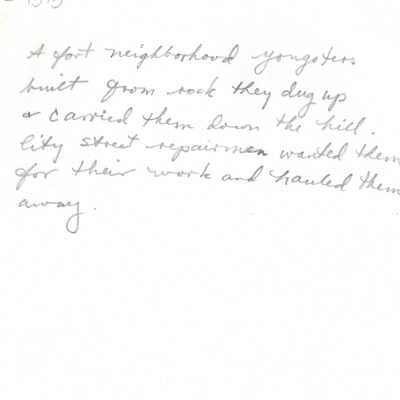 A fort neighborhood yongsters
built from rock they dug up
& carried them down the hill.
City street repairmen wanted them
for their work and hauled them
away.